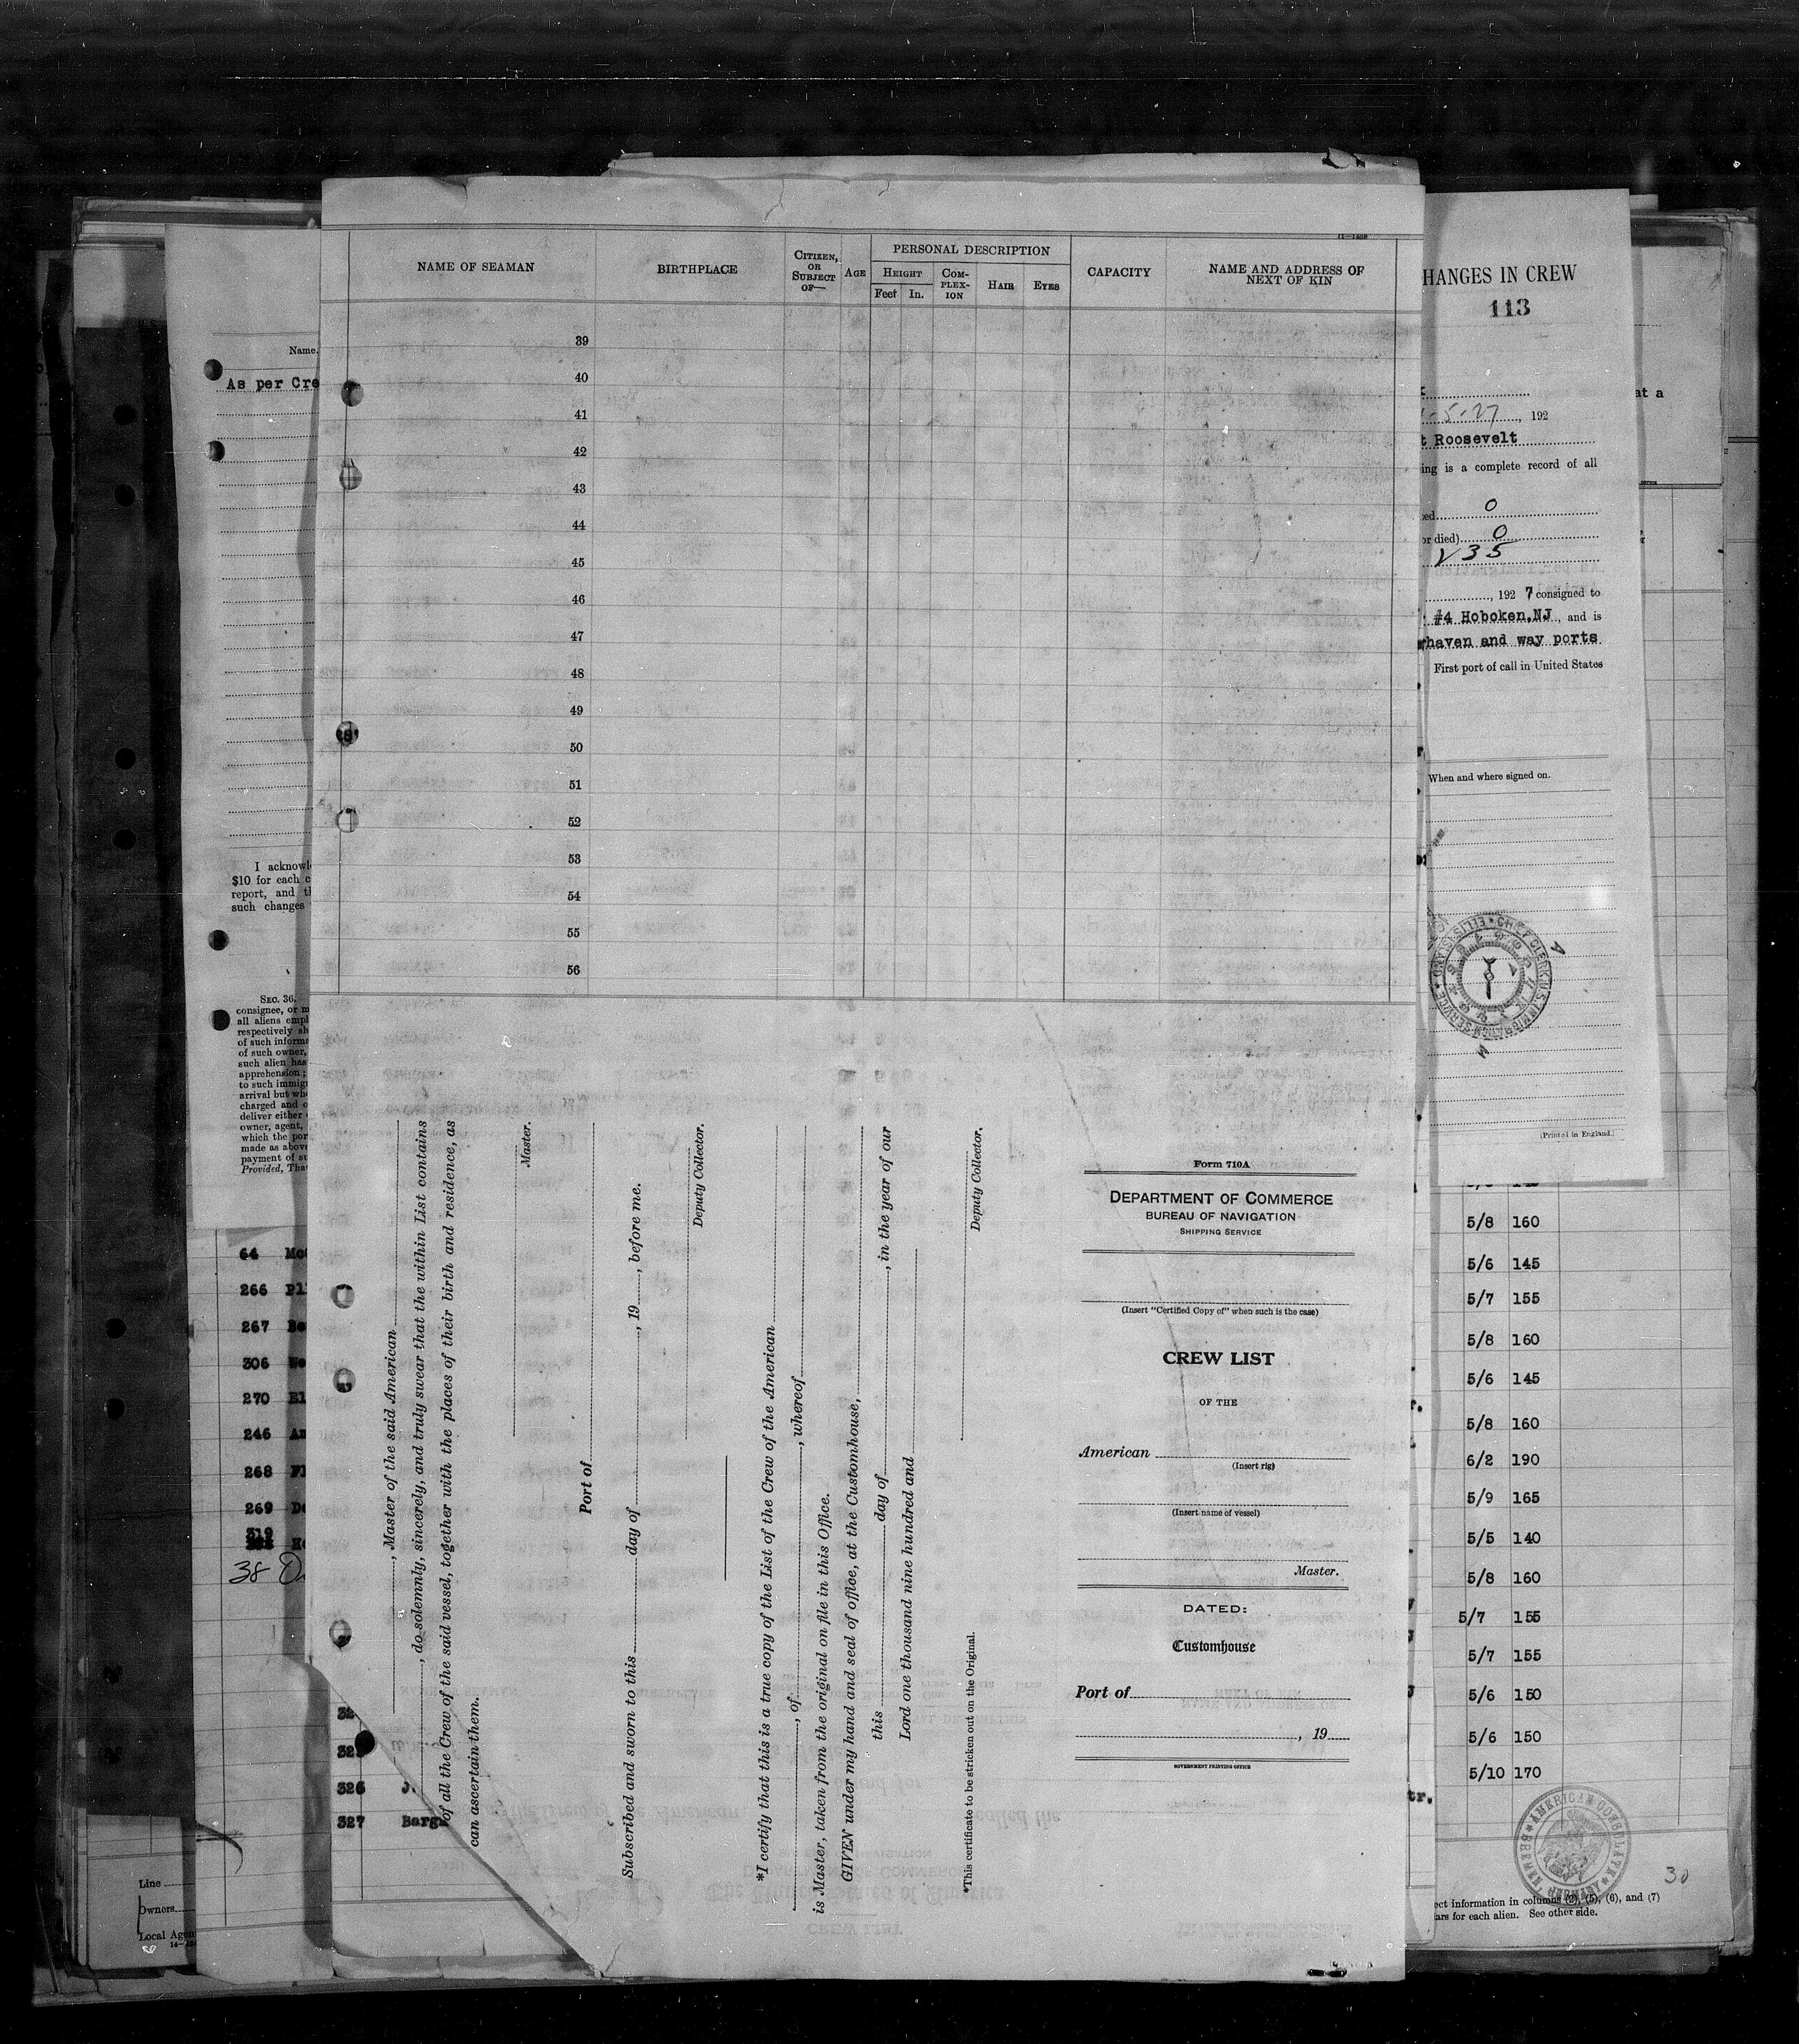 11—1408
NAME OF SEAMAN
BIRTHPLACE
CITIZEN, OR SUBJECT OF—
AGE
PERSONAL DESCRIPTION
HEIGHT
Feet
In.
COM-PLEX-ION
HAIR
EYES
CAPACITY
NAME AND ADDRESS OF NEXT OF KIN
39
40
41
42
43
44
45
46
47
48
49
50
51
52
53
54
55
56
, Master of the said American
, do solemnly, sincerely, and truly swear that the within List contains
of all the Crew of the said vessel, together with the places of their birth and residence, as
can ascertain them.
Master.
Port of
Subscribed and sworn to this day of , 19 , before me.
Deputy Collector.
*I certify that this is a true copy of the List of the Crew of the American
, of , whereof
is Master, taken from the original on file in this Office.
GIVEN under my hand and seal of office, at the Customhouse,
this day of , in the year of our
Lord one thousand nine hundred and
Deputy Collector.
*This certificate to be stricken out on the Original.
Form 710A
DEPARTMENT OF COMMERCE
BUREAU OF NAVIGATION
SHIPPING SERVICE
(Insert "Certified Copy of" when such is the case)
CREW LIST
OF THE
American
(Insert rig)
(Insert name of vessel)
Master.
DATED:
Customhouse
Port of
, 19
GOVERNMENT PRINTING OFFICE
Name.
As per Cre
I acknowl
$10 for each c
report, and th
such changes
SEC. 36.
consignee, or m
all aliens empl
respectively sh
of such informa
of such owner,
such alien has
apprehension;
to such immigr
arrival but whe
charged and o
deliver either
owner, agent,
which the por
made as above
payment of su
Provided, Tha
64
266 Pl
267
306
270 El
246 An
268 Fl
269 De
319
38
326 J.
327 Barg
Line
Owners
Local Agen
HANGES IN CREW
113
-5-27, 192
t Roosevelt
ing is a complete record of all
ed 0
or died) 0
V35
, 192 7 consigned to
#4 Hoboken,NJ, and is
rhaven and way ports
First port of call in United States
When and where signed on.
CHIEF CLERK U.S. IMMIGRATION SERVICE
ELLIS ISLAND
(Printed in England.)
at a
5/8 160
5/6 145
5/7 155
5/8 160
5/6 145
5/8 160
6/2 190
5/9 165
5/5 140
5/8 160
5/7 155
5/7 155
5/6 150
5/6 150
5/10 170
tr.
AMERICAN CONSULATE
30
ect information in columns (2), (5), (6), and (7)
ars for each alien. See other side.